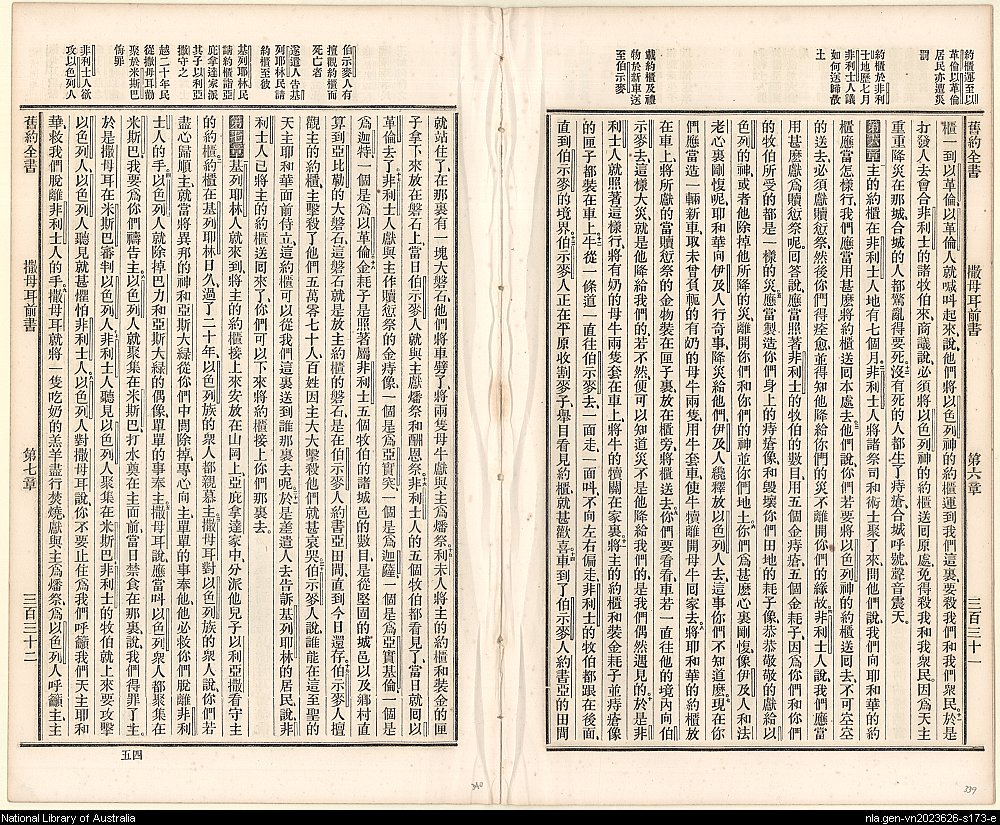 約櫃運至以
革倫以革倫
居民亦遭災
罰
約櫃於非利
士地歷七月
非利士人議
如何送歸故
土
載約櫃及禮
物於新車送
至伯示麥
舊約全書 撒母耳前書 第六章 三百三十一
櫃一到以革倫以革倫人就喊叫起來說他們將以色列神的約櫃運到我們這裏要殺我們和我們衆民於是
打發人去會合非利士的諸牧伯來商議說必須將以色列神的約櫃送回原處免得殺我和我衆民因爲天主
重重降災在那城合城的人都驚亂得要死沒有死的人都生了痔瘡合城呼號聲音震天
第六章主的約櫃在非利士人地有七個月非利士人將諸祭司和術士聚了來問他們說我們向耶和華的約
櫃應當怎樣行我們應當用甚麼將約櫃送回本處去他們說你們若要將以色列神的約櫃送回去不可空空
的送去必須獻贖愆祭然後你們得痊愈並得知他降給你們的災不離開你們的緣故非利士人說我們應當
用甚麼獻爲贖愆祭呢回答說應當照著非利士的牧伯的數目用五個金痔瘡五個金耗子因爲你們和你們
的牧伯所受的都是一樣的災應當製造你們身上的痔瘡像和毀壞你們田地的耗子像恭恭敬敬的獻給以
色列的神或者他除掉他所降的災離開你們和你們的神並你們地土你們爲甚麼心裏剛愎像伊及人和法
老心裏剛愎呢耶和華向伊及人行奇事降災給他們伊及人纔釋放以色列人去這事你們不知道麼現在你
們應當造一輛新車取未曾負軛的有奶的母牛兩隻用牛套車使牛犢離開母牛囘家去將耶和華的約櫃放
在車上將所獻的當贖愆祭的金物裝在匣子裏放在櫃旁將櫃送去你們要看看車若一直往他的境內向伯
示麥去這樣大災就是他降給我們的若不然便可以知道災不是他降給我們的是我們偶然遇見的於是非
利士人就照著這樣行將有奶的母牛兩隻套在車上將牛的犢關在家裏將主的約櫃和裝金耗子並痔瘡像
的匣子都裝在車上牛從一條道一直往伯示麥去一面走一面叫不向左右偏走非利士的牧伯都跟在後面
直到伯示麥的境界伯示麥人正在平原收割麥子舉目看見約櫃就甚歡喜車到了伯示麥人約書亞的田間
伯示麥人有
擅觀約櫃而
死亡者
遂遣人告基
列耶林民請
約櫃至彼
基列耶林民
請約櫃諸亞
庇拿達家派
其子以利亞
撒守之
越二十年民
從撒母耳勸
聚於米斯巴
侮罪
非利士人欲
攻以色列人
就站住了在那裏有一塊大磐石他們將車劈了將兩隻母牛獻與主爲燔祭利未人將主的約櫃和裝金的匣
子拿下來放在磐石上當日伯示麥人就與主獻燔祭和酬恩祭非利士人的五個牧伯都看見了當日就囘以
革倫去了非利士人獻與主作贖愆祭的金痔像一個是爲亞實突一個是爲迦薩一個是爲亞實基倫一個是
爲迦特一個是爲以革倫金耗子是照著屬非利士五個牧伯的諸城邑的數目是從堅固的城邑以及鄉村直
算到亞比勒的大磐石這磐石就是放主約櫃的磐石是在伯示麥人約書亞田間直到今日還存伯示麥人擅
觀主的約櫃主擊殺了他們五萬零七十人百姓因主大大擊殺他們就甚哀哭伯示麥人說誰能在這至聖的
天主耶和華面前侍立這約櫃可以從我們這裏送到誰那裏去呢於是差遣人去告訴基列耶林的居民說非
利士人已將主的約櫃送囘來了你們可以下來將約櫃接上你們那裏去
第七章基列耶林人就來到將主的約櫃接上來安放在山岡上亞庇拿達家中分派他兒子以利亞撒看守主
的約櫃約櫃在基列耶林日久過了二十年以色列族的衆人都親慕主撒母耳對以色列族的衆人說你們若
盡心歸順主就當將異邦的神和亞斯大綠從你們中間除掉專心向主單單的事奉他他必救你們脫離非利
士人的手以色列人就除掉巴力和亞斯大綠的偶像單單的事奉主撒母耳說應當叫以色列衆人都聚集在
米斯巴我要爲你們禱告主以色列人就聚集在米斯巴打水奠在主面前當日禁食在那裏說我們得罪了主
於是撒母耳在米斯巴審判以色列人非利士人聽見以色列人聚集在米斯巴非利士的牧伯就上來要攻擊
以色列人以色列人聽見就甚懼怕非利士人以色列人對撒母耳說你不要止住爲我們呼籲我們天主耶和
華救我們脫離非利士人的手撒母耳就將一隻吃奶的羔羊盡行焚燒獻與主爲燔祭爲以色列人呼籲主主
舊約全書 撒母耳前書 第七章 三百三十二
四五
340
339
National Library of Australia
nla.gen-vn2023626-s173-e